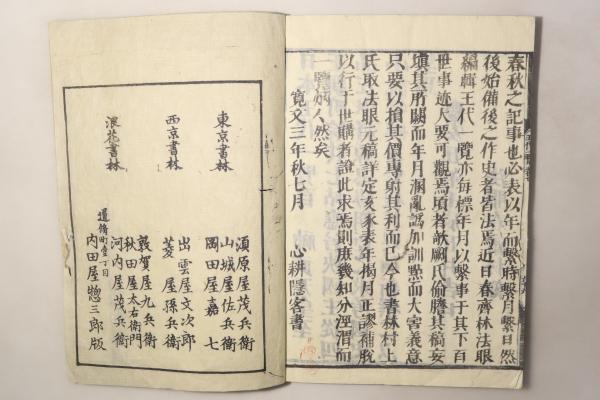 春秋之記事也必表以年而繫時繫月繫日然
後始備後之作史者皆法焉近日春齋林法眼
編輯王代一覽亦每標年月以繫事于其下百
世事迹大要可觀焉頃者歘闕氏偷謄其稿妄
填其所闕而年月溷亂譌加訓點而大害義意
只要以損其價專射其利而已今也書林村上
氏取法眼元稿詳定亥豕表年揭月正謬補脫
以行于世購者證此求焉則庶幾知分涇渭而
一覽炳然矣
寬文三年秋七月 心耕隱客書
東京書林
須原屋茂兵衛
山城屋佐兵衛
岡田屋嘉七
西京書林
出雲屋文次郎
菱屋孫兵衛
浪花書林
敦賀屋九兵衛
秋田屋太右衛門
河内屋茂兵衛
道修町壹丁目
内田屋惣三郎版